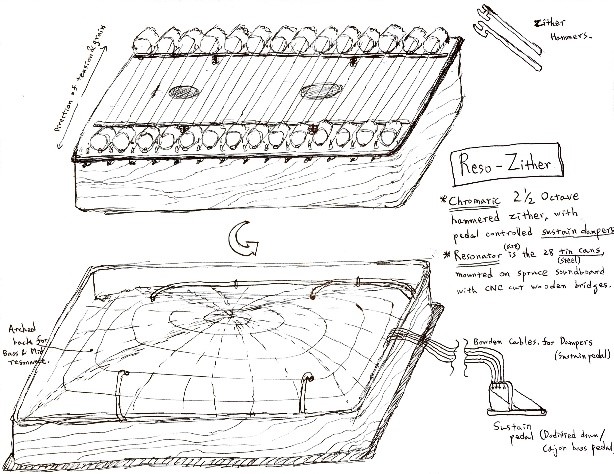 Zither
Hammers.
Direction of tension & grain
Reso-Zither
* Chromatic 2 1/2 Octave
hammered zither, with
pedal controlled sustain dampers
(are)
* Resonator is the 28 tin cans,
(steel)
mounted on spruce soundboard
with CNC cut wooden bridges.
Arched
back for
Bass & Mid
resonance.
Bowden Cables, for Dampers
(Sustain pedal)
Sustain
pedal (Modified drum/
Cajon bass pedal